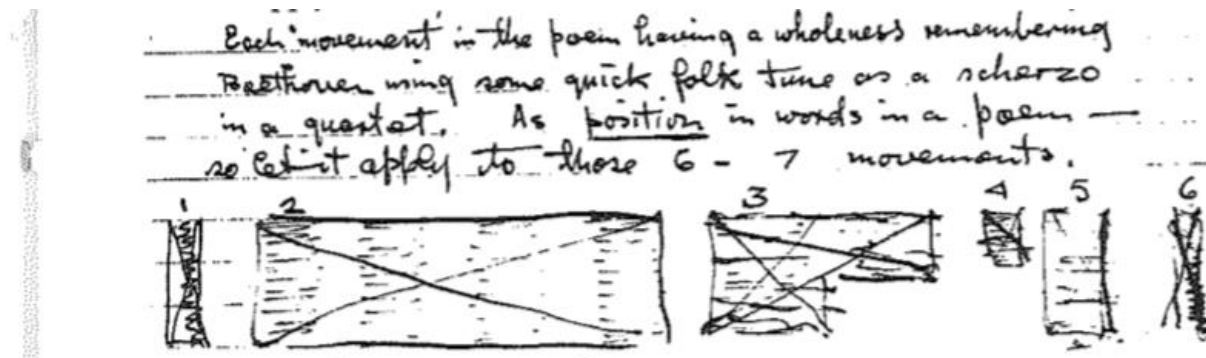 Each 'movement' in the poem having a wholeness remembering
Beethoven using some quick folk tune as a scherzo
in a quartet. As position in words in a poem —
so let it apply to those 6 - 7 movements.
1 2 3 4 5 6